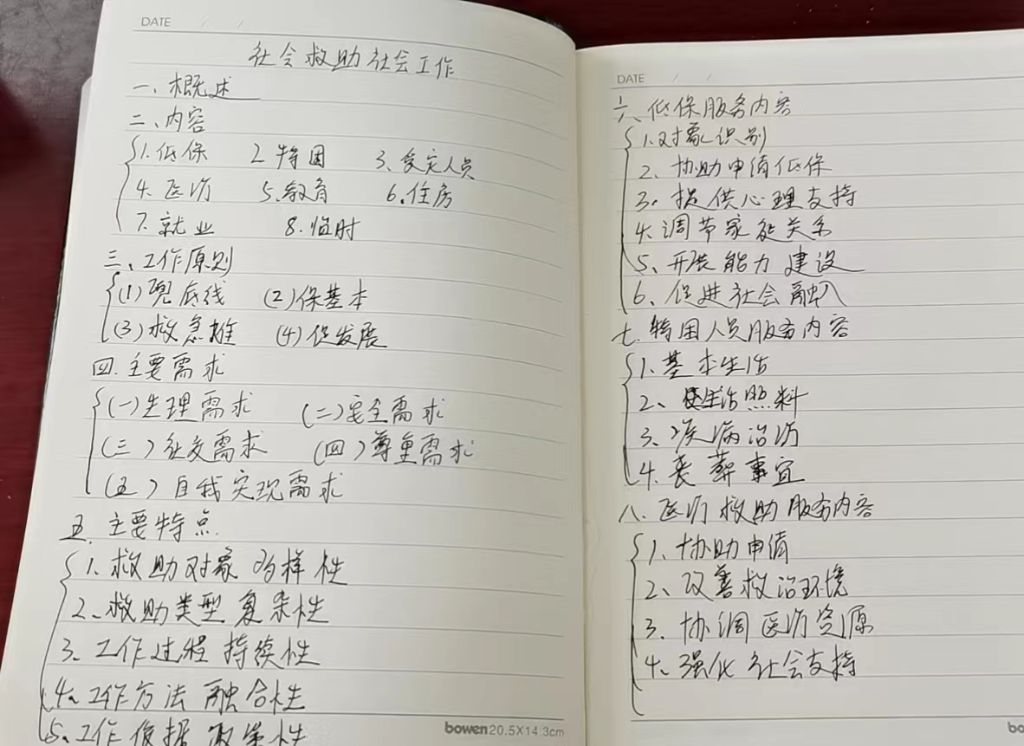 DATE / /
社会救助社会工作
一、概述
二、内容
1.低保 2.特困 3.受灾人员
4.医疗 5.教育 6.住房
7.就业 8.临时
三、工作原则
(1)兜底线 (2)保基本
(3)救急难 (4)促发展
四.主要需求
(一)生理需求 (二)安全需求
(三)社交需求 (四)尊重需求
(五)自我实现需求
五.主要特点
1.救助对象多样性
2.救助类型复杂性
3.工作过程持续性
4、工作方法融合性
5、工作依据政策性
bowen 20.5X14.3cm
DATE / /
六、低保服务内容
1.对象识别
2.协助申请低保
3.提供心理支持
4.调节家庭关系
5、开展能力建设
6、促进社会融入
七.特困人员服务内容
1.基本生活
2、生活照料
3、疾病治疗
4.丧葬事宜
八.医疗救助服务内容
1、协助申请
2、改善救治环境
3.协调医疗资源
4、强化社会支持
bo